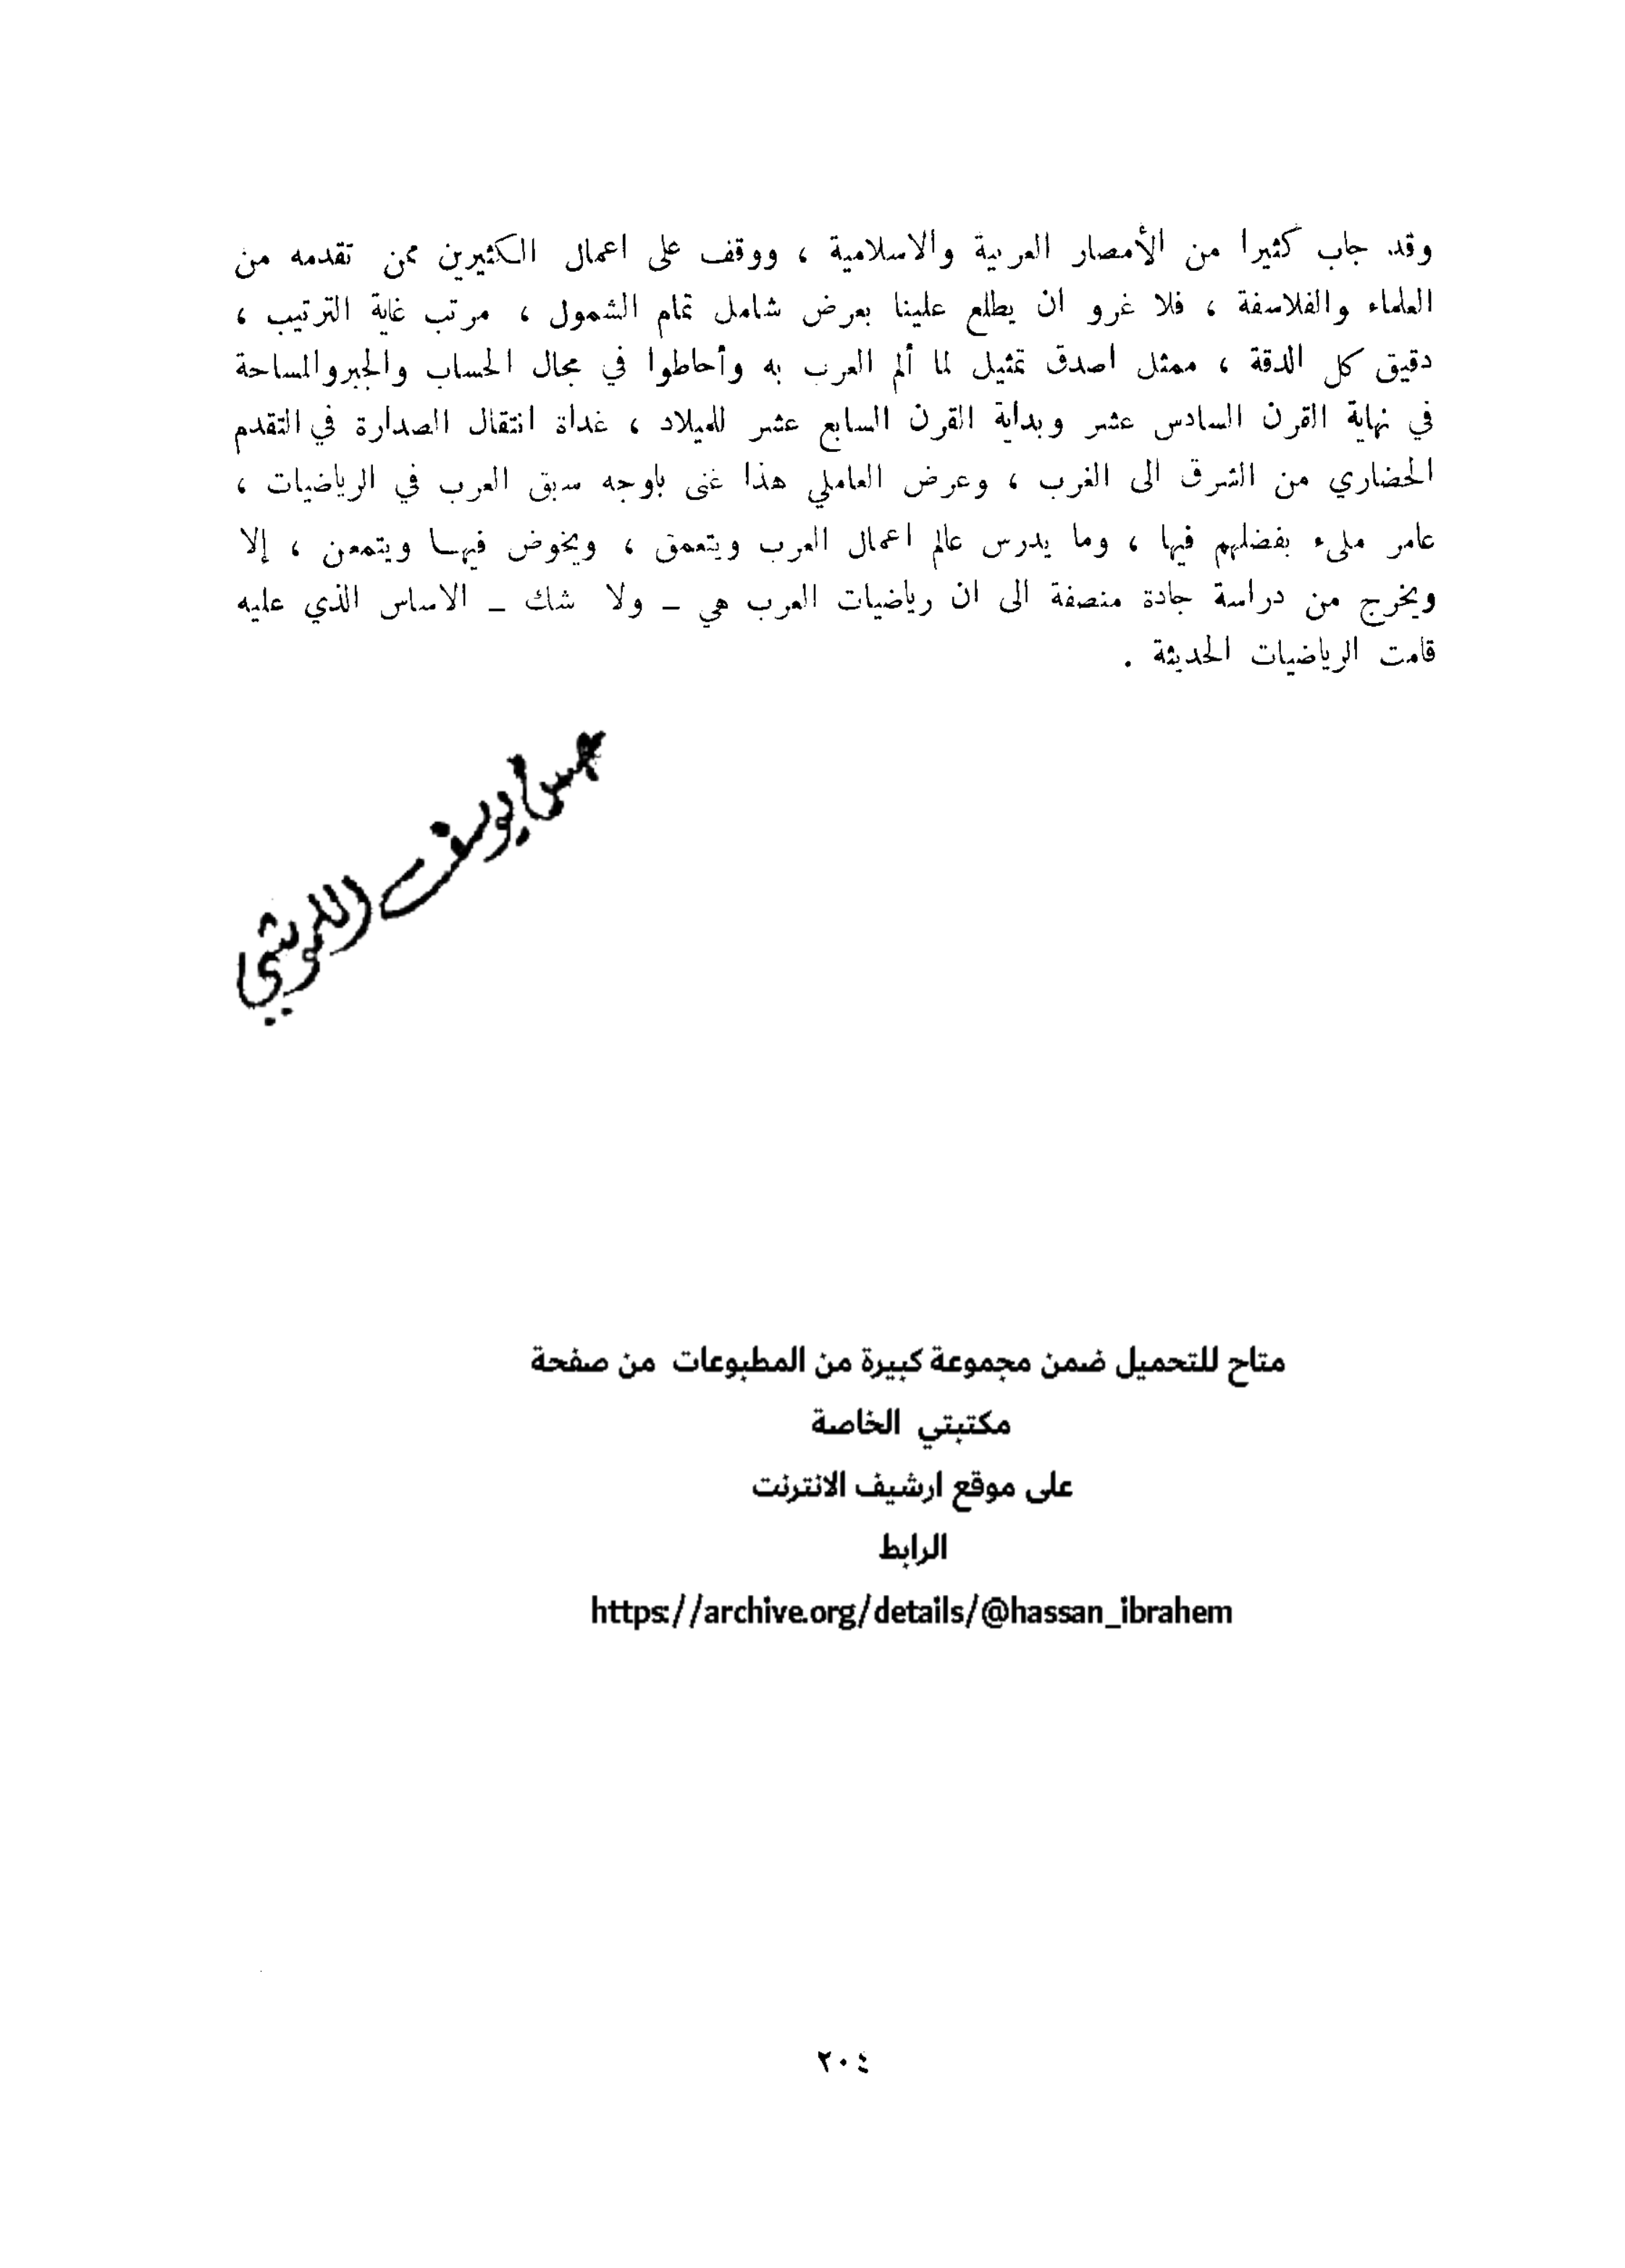 وقد جاب كثيرا من الأمصار العربية والاسلامية ، ووقف على اعمال الكثيرين ممن تقدمه من
العلماء والفلاسفة ، فلا غرو ان يطلع علينا بعرض شامل تمام الشمول ، مرتب غاية الترتيب ،
دقيق كل الدقة ، ممثل اصدق تمثيل لما ألم العرب به وأحاطوا في مجال الحساب والجبروالمساحة
في نهاية القرن السادس عشر وبداية القرن السابع عشر للميلاد ، غداة انتقال الصدارة في التقدم
الحضاري من الشرق الى الغرب ، وعرض العاملي هذا غنى باوجه سبق العرب في الرياضيات ،
عامر مليء بفضلهم فيها ، وما يدرس عالم اعمال العرب ويتعمق ، ويخوض فيها ويتمعن ، إلا
ويخرج من دراسة جادة منصفة الى ان رياضيات العرب هي - ولا شك - الاساس الذي عليه
قامت الرياضيات الحديثة .
يوسف
متاح للتحميل ضمن مجموعة كبيرة من المطبوعات من صفحة
مكتبتي الخاصة
على موقع ارشيف الانترنت
الرابط
https://archive.org/details/@hassan_ibrahem
٢٠٤